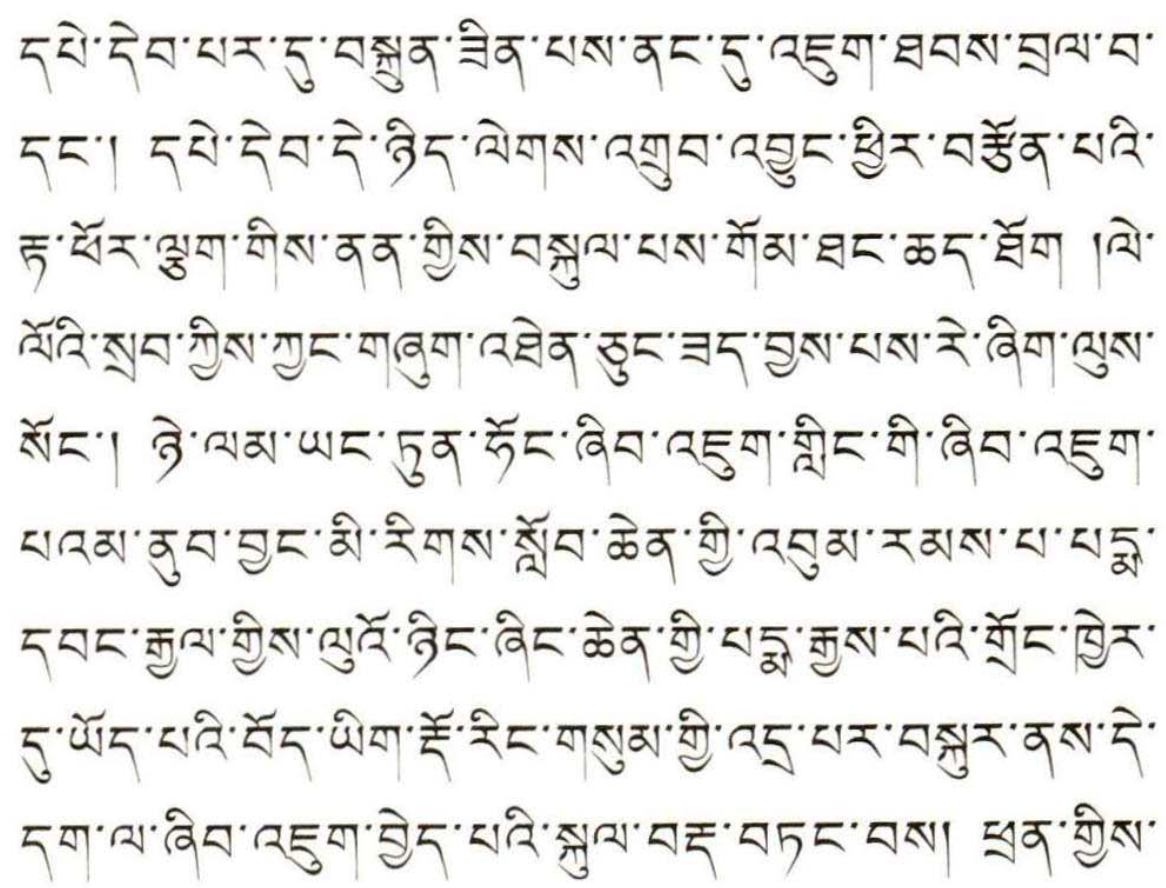 དཔེ་དེབ་པར་དུ་བསྐྲུན་ཟིན་པས་ནང་དུ་འཇུག་ཐབས་བྲལ་བ་
དང་། དཔེ་དེབ་དེ་ཉིད་ལེགས་འགྲུབ་འབྱུང་ཕྱིར་བརྩོན་པའི་
རྟ་ཕོར་ལྕག་གིས་ནན་གྱིས་བསྐུལ་པས་གོམ་ཐང་ཆད་ཐོག །ལེ་
ལོའི་སྲབ་ཀྱིས་ཀྱང་གཞུག་འཐེན་ཅུང་ཟད་བྱས་པས་རེ་ཞིག་ལུས་
སོང་། ཉེ་ལམ་ཡང་ཏུན་ཧོང་ཞིབ་འཇུག་གླིང་གི་ཞིབ་འཇུག་
པའམ་ནུབ་བྱང་མི་རིགས་སློབ་ཆེན་གྱི་འབུམ་རམས་པ་པདྨ་
དབང་རྒྱལ་གྱིས་ལུའོ་ཉིང་ཞིང་ཆེན་གྱི་པདྨ་རྒྱས་པའི་གྲོང་ཁྱེར་
དུ་ཡོད་པའི་བོད་ཡིག་རྡོ་རིང་གསུམ་གྱི་འདྲ་པར་བསྐུར་ནས་དེ་
དག་ལ་ཞིབ་འཇུག་བྱེད་པའི་སྐུལ་བརྡ་བཏང་བས། ཕྲན་གྱིས་